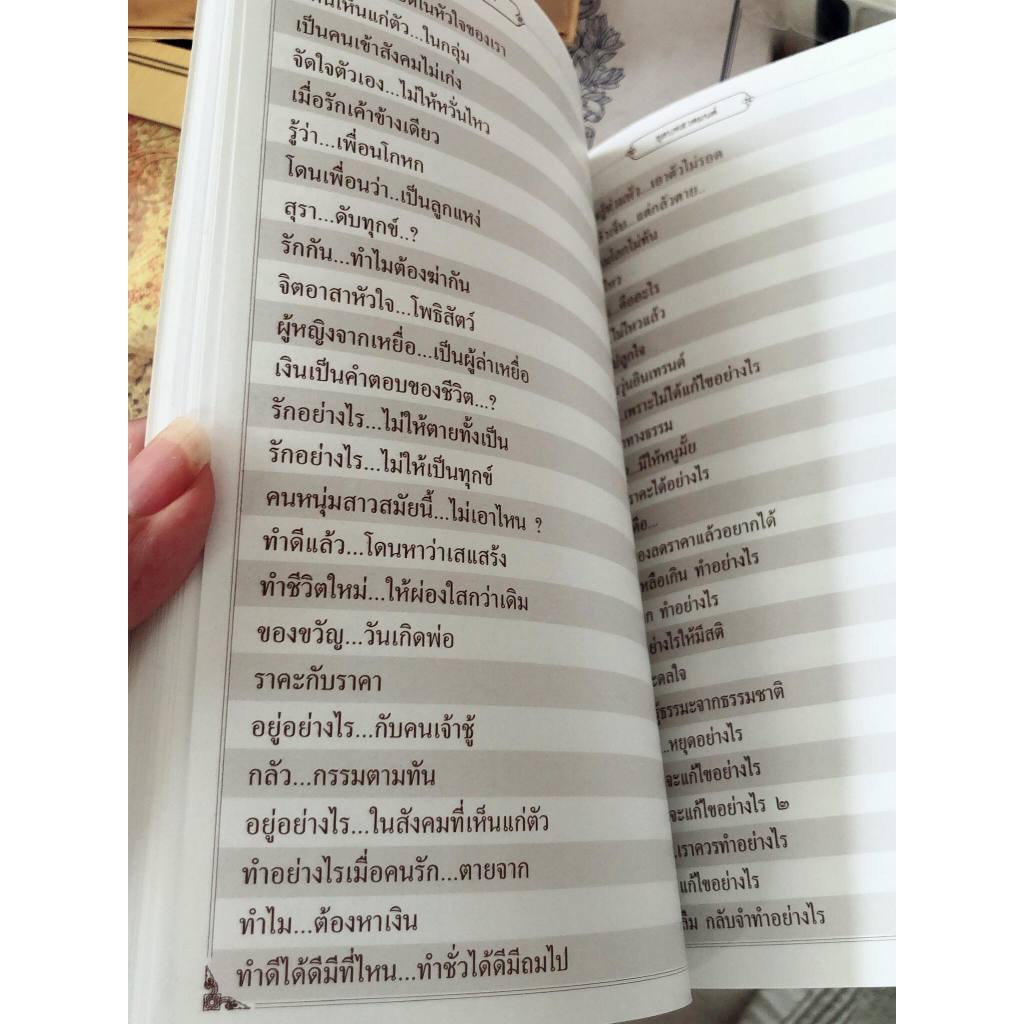 ในหัวใจของเรา
คนเห็นแก่ตัว...ในกลุ่ม
เป็นคนเข้าสังคมไม่เก่ง
จัดใจตัวเอง...ไม่ให้หวั่นไหว
เมื่อรักเค้าข้างเดียว
รู้ว่า...เพื่อนโกหก
โดนเพื่อนว่า..เป็นลูกแหง่
สุรา...ดับทุกข์..?
รักกัน...ทำไมต้องฆ่ากัน
จิตอาสาหัวใจ...โพธิสัตว์
ผู้หญิงจากเหยื่อ...เป็นผู้ล่าเหยื่อ
เงินเป็นคำตอบของชีวิต...?
รักอย่างไร...ไม่ให้ตายทั้งเป็น
รักอย่างไร...ไม่ให้เป็นทุกข์
คนหนุ่มสาวสมัยนี้...ไม่เอาไหน ?
ทำดีแล้ว...โดนหาว่าเสแสร้ง
ทำชีวิตใหม่...ให้ผ่องใสกว่าเดิม
ของขวัญ...วันเกิดพ่อ
ราคะกับราคา
อยู่อย่างไร...กับคนเจ้าชู้
กลัว...กรรมตามทัน
อยู่อย่างไร...ในสังคมที่เห็นแก่ตัว
ทำอย่างไรเมื่อคนรัก...ตายจาก
ทำไม...ต้องหาเงิน
ทำดีได้ดีมีที่ไหน...ทำชั่วได้ดีมีถมไป
...เอาตัวไม่รอด
...แต่กลัวตาย..
ไม่ทัน
คืออะไร
ไม่ไหวแล้ว
ปลูกใจ
วุ่นอินเทรนด์
...เพราะไม่ได้แก้ไขอย่างไร
ทางธรรม
...มีให้หนูมั้ย
ราคะได้อย่างไร
คือ...
องลดราคาแล้วอยากได้
หลือเกิน ทำอย่างไร
ทำอย่างไร
ย่างไรให้มีสติ
ะดลใจ
รู้ธรรมะจากธรรมชาติ
...หยุดอย่างไร
จะแก้ไขอย่างไร
จะแก้ไขอย่างไร ๒
..เราควรทำอย่างไร
แก้ไขอย่างไร
ลืม กลับจำทำอย่างไร